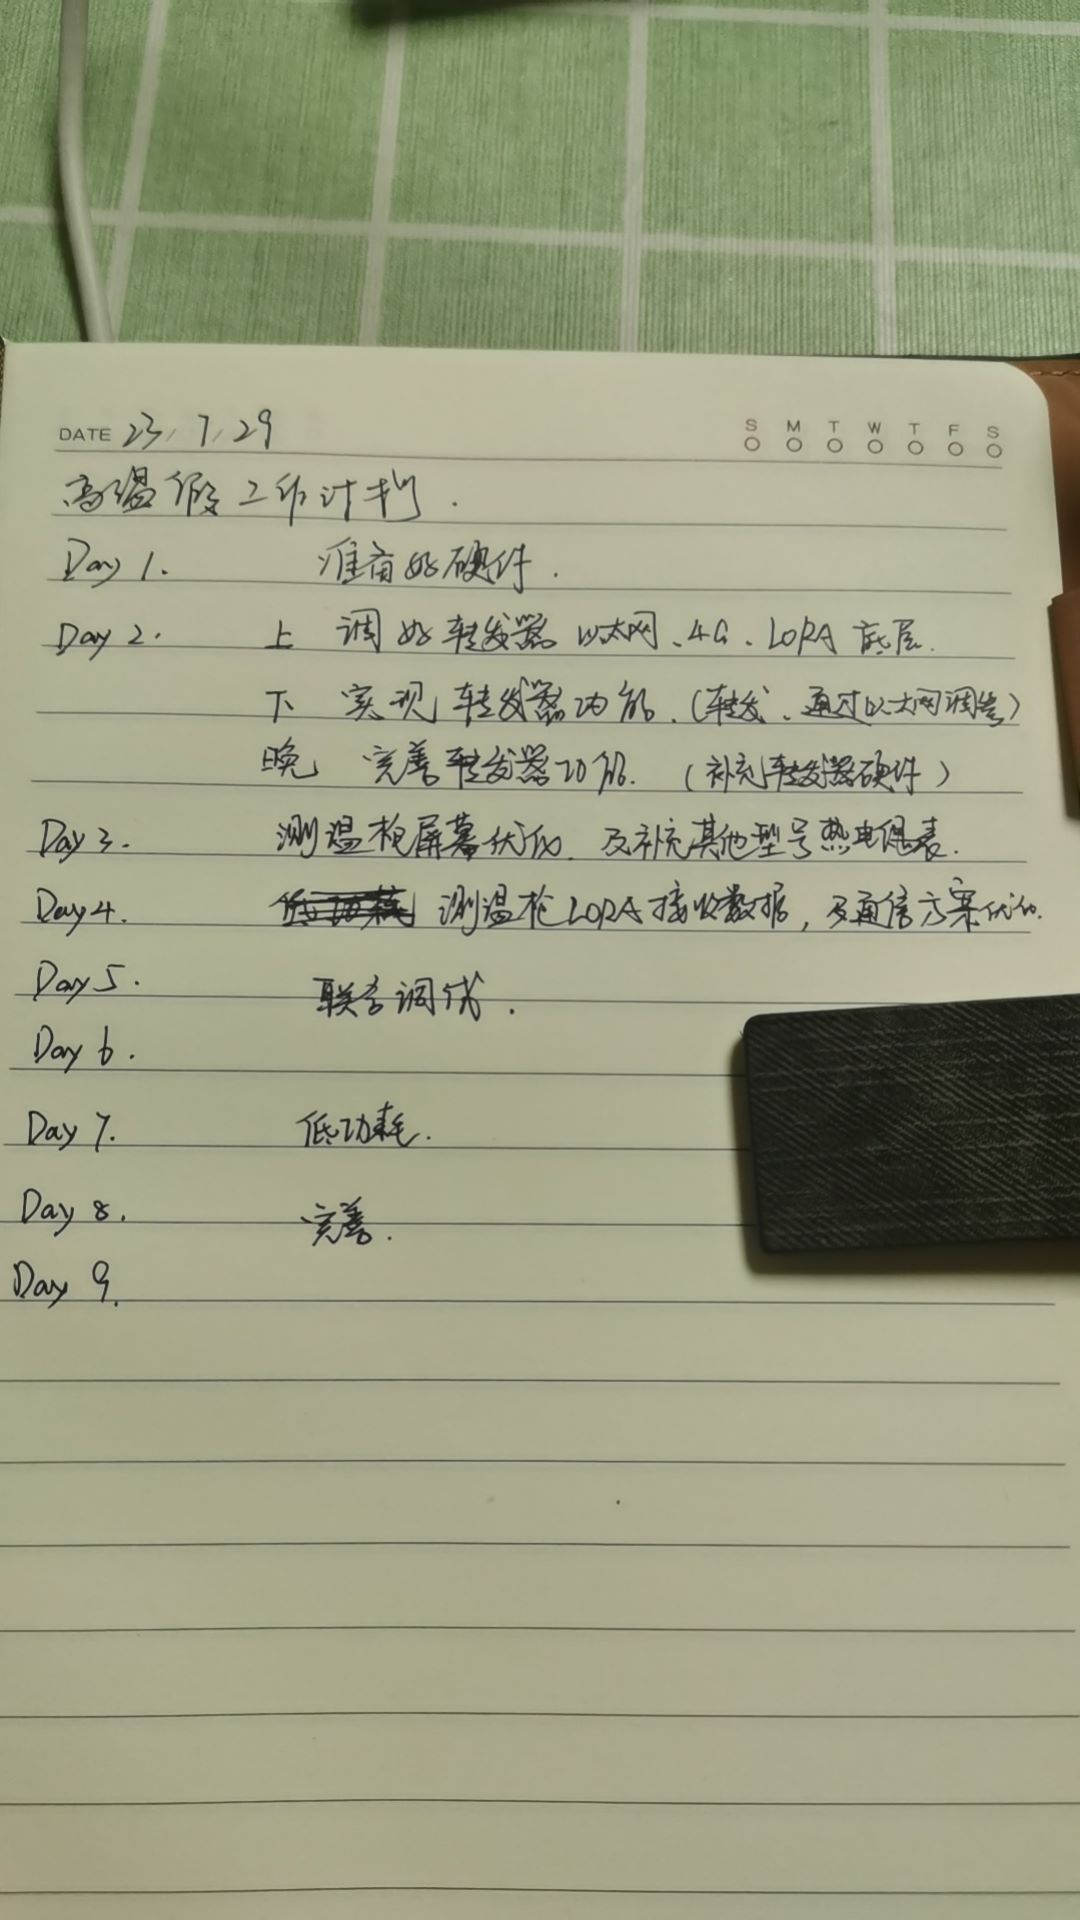 DATE 23/7/29
S M T W T F S
高温假工作计划.
Day 1. 准备好硬件.
Day 2. 上 调好转发器以太网、4G、LORA底层.
下 实现转发器功能.(转发、通过以太网调)
晚 完善转发器功能.(补充转发器硬件)
Day 3. 测温枪屏幕优化.及补充其他型号热电偶表.
Day 4. 测温枪LORA接收数据,及通信方案优化.
Day 5. 联合调试.
Day 6.
Day 7. 低功耗.
Day 8. 完善.
Day 9.